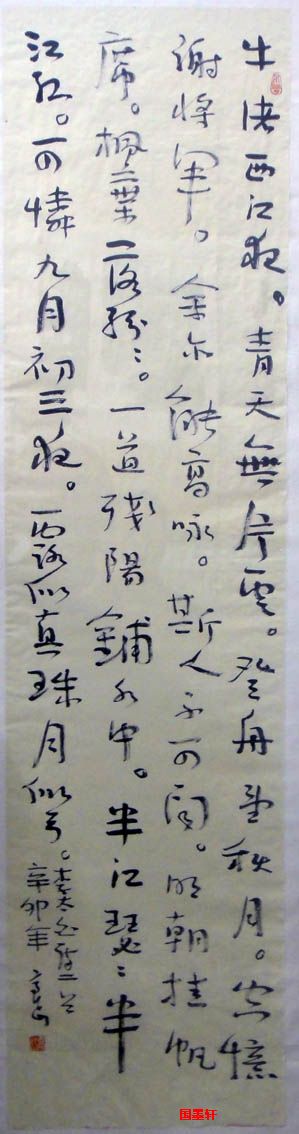 牛渚西江夜。青天無片雲。登舟望秋月。空憶
謝將軍。余亦能高咏。斯人不可闻。明朝挂帆
席。楓葉落紛〻。一道殘陽鋪水中。半江瑟〻半
江红。可憐九月初三夜。露似真珠月似弓。
李太白
辛卯年
国墨轩